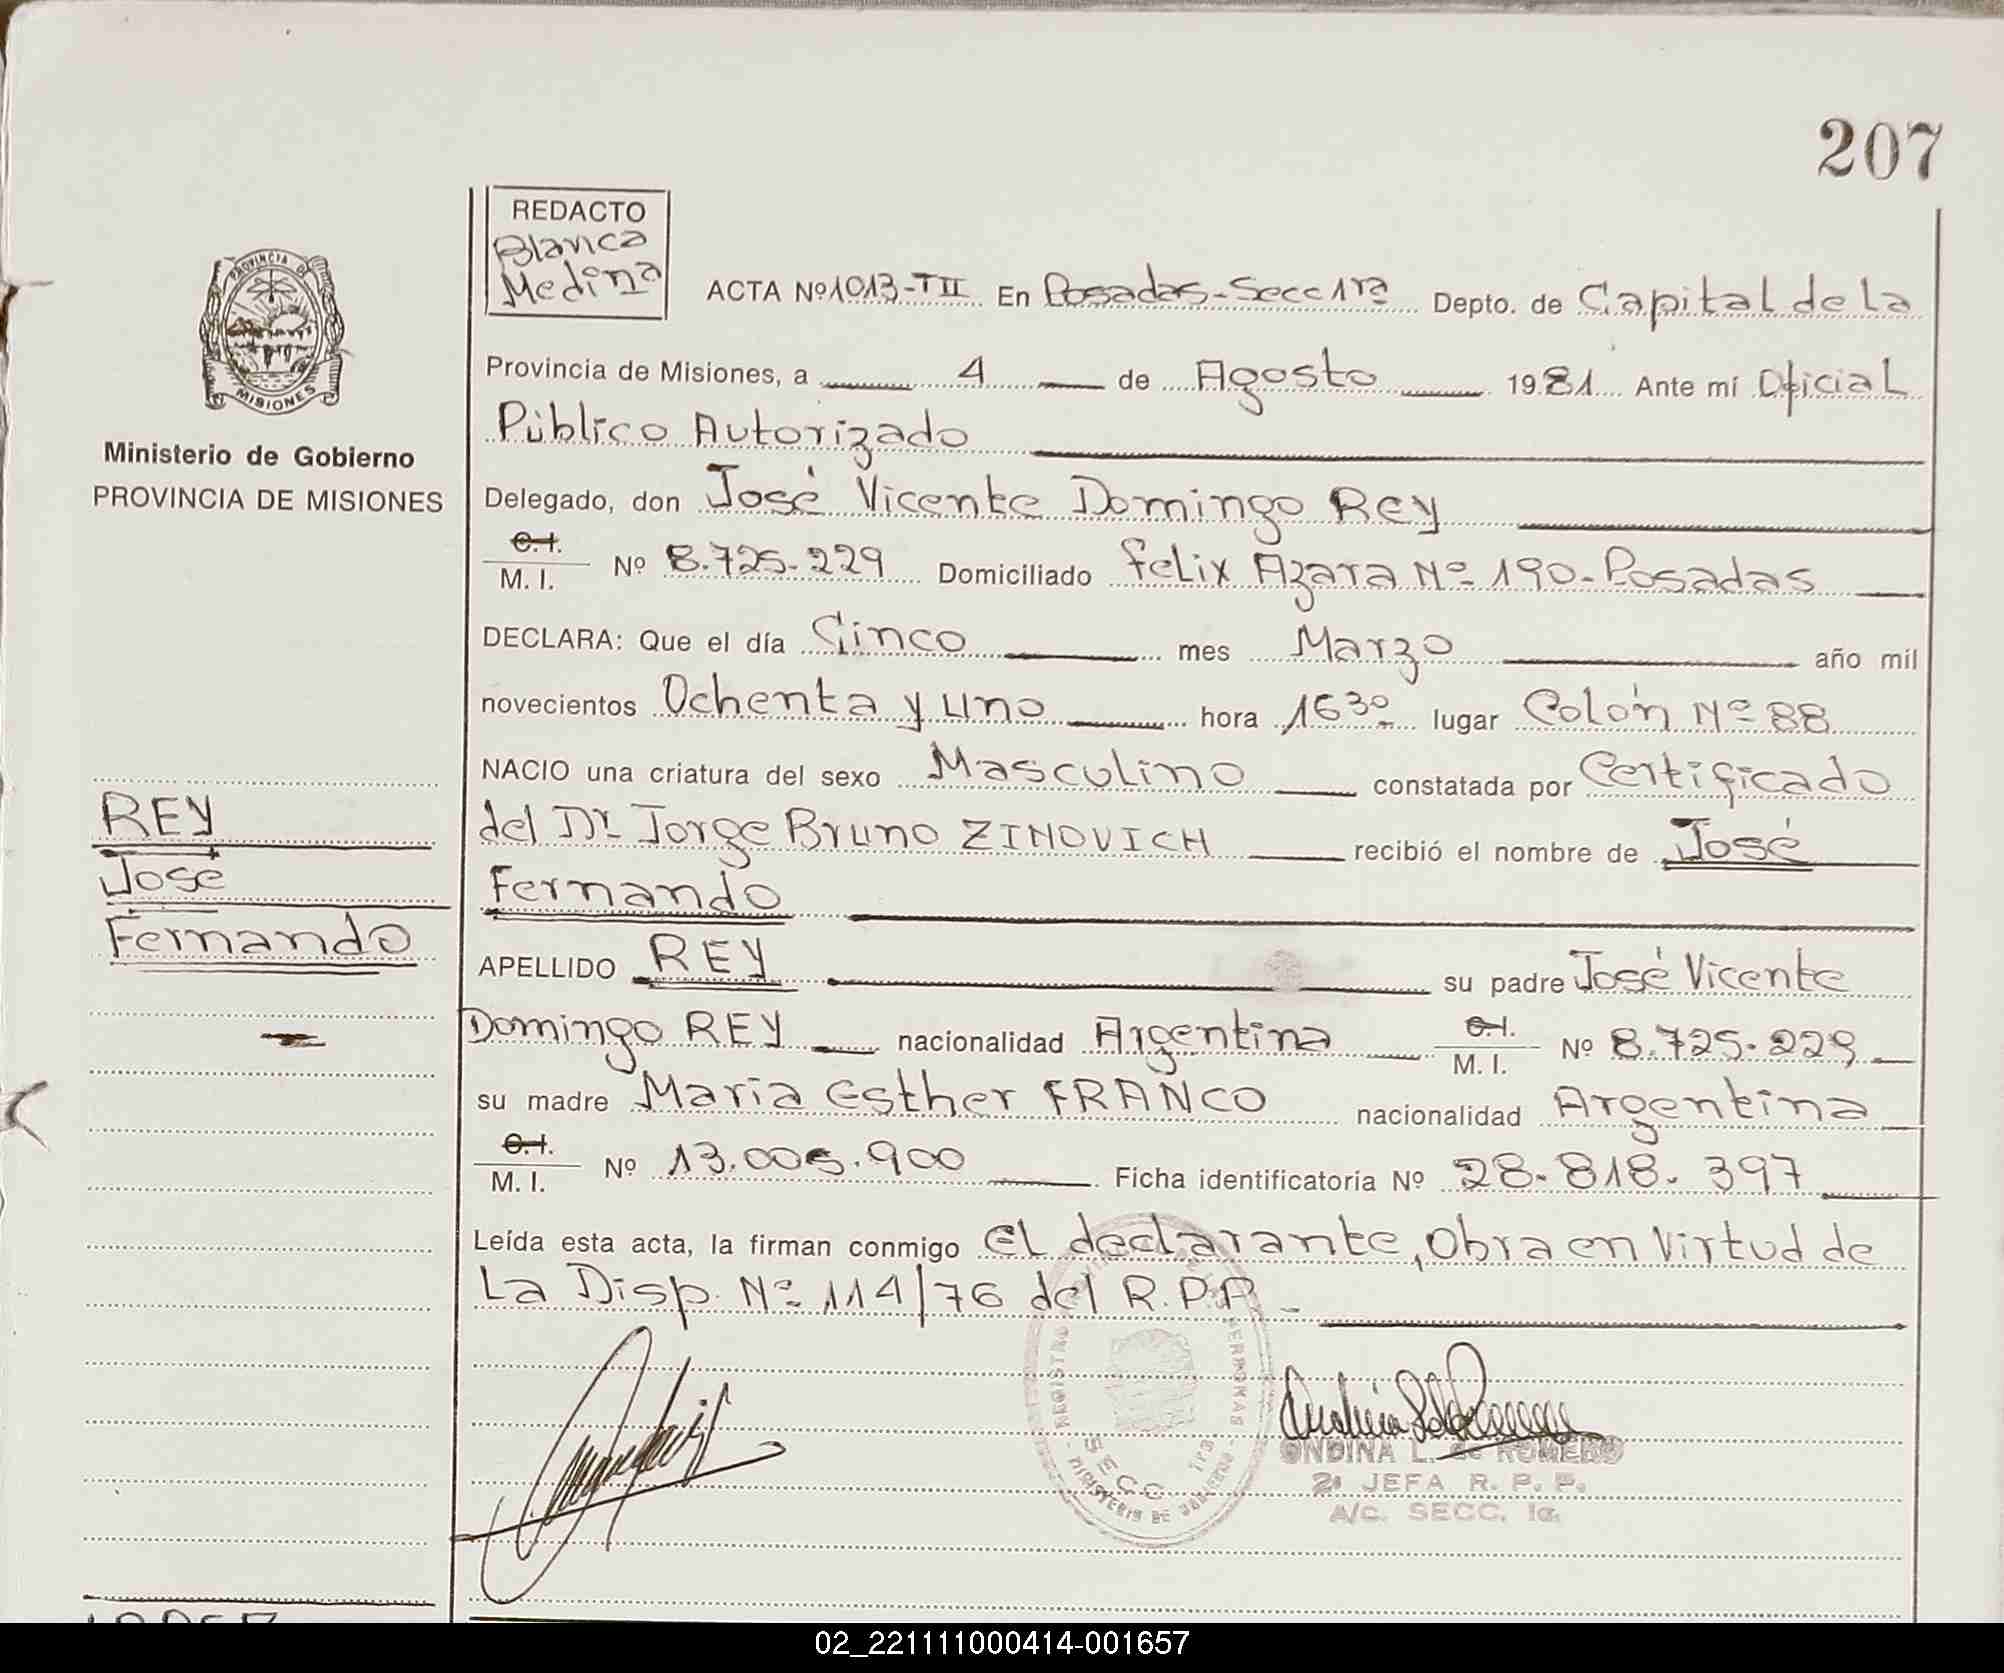 207
REDACTO
Blanca
Medina
ACTA Nº 1013-TII En Posadas-Secc 1ra Depto. de Capital de la
PROVINCIA DE
MISIONES
Provincia de Misiones, a 4 de Agosto 1981 Ante mí Oficial
Público Autorizado
Ministerio de Gobierno
PROVINCIA DE MISIONES
Delegado, don José Vicente Domingo Rey
C.I.
M. I. Nº 8.725.229 Domiciliado Felix Azara Nº 190-Posadas
DECLARA: Que el día Cinco mes Marzo año mil
novecientos Ochenta y uno hora 16 30 lugar Colón Nº 88
NACIO una criatura del sexo Masculino constatada por Certificado
del Dr. Jorge Bruno ZINOVICH recibió el nombre de José
Fernando
REY
José
Fernando
APELLIDO REY su padre José Vicente
Domingo REY nacionalidad Argentina C.I. M. I. Nº 8.725.229
su madre Maria Esther FRANCO nacionalidad Argentina
C.I.
M. I. Nº 13.005.900 Ficha identificatoria Nº 28.818.397
Leída esta acta, la firman conmigo el declarante, Obra en Virtud de
La Disp. Nº 114/76 del R.P.P.
SECC
ONDINA L. de ROMERO
2ª JEFA R. P. P.
A/C. SECC. 1a.
02_221111000414-001657